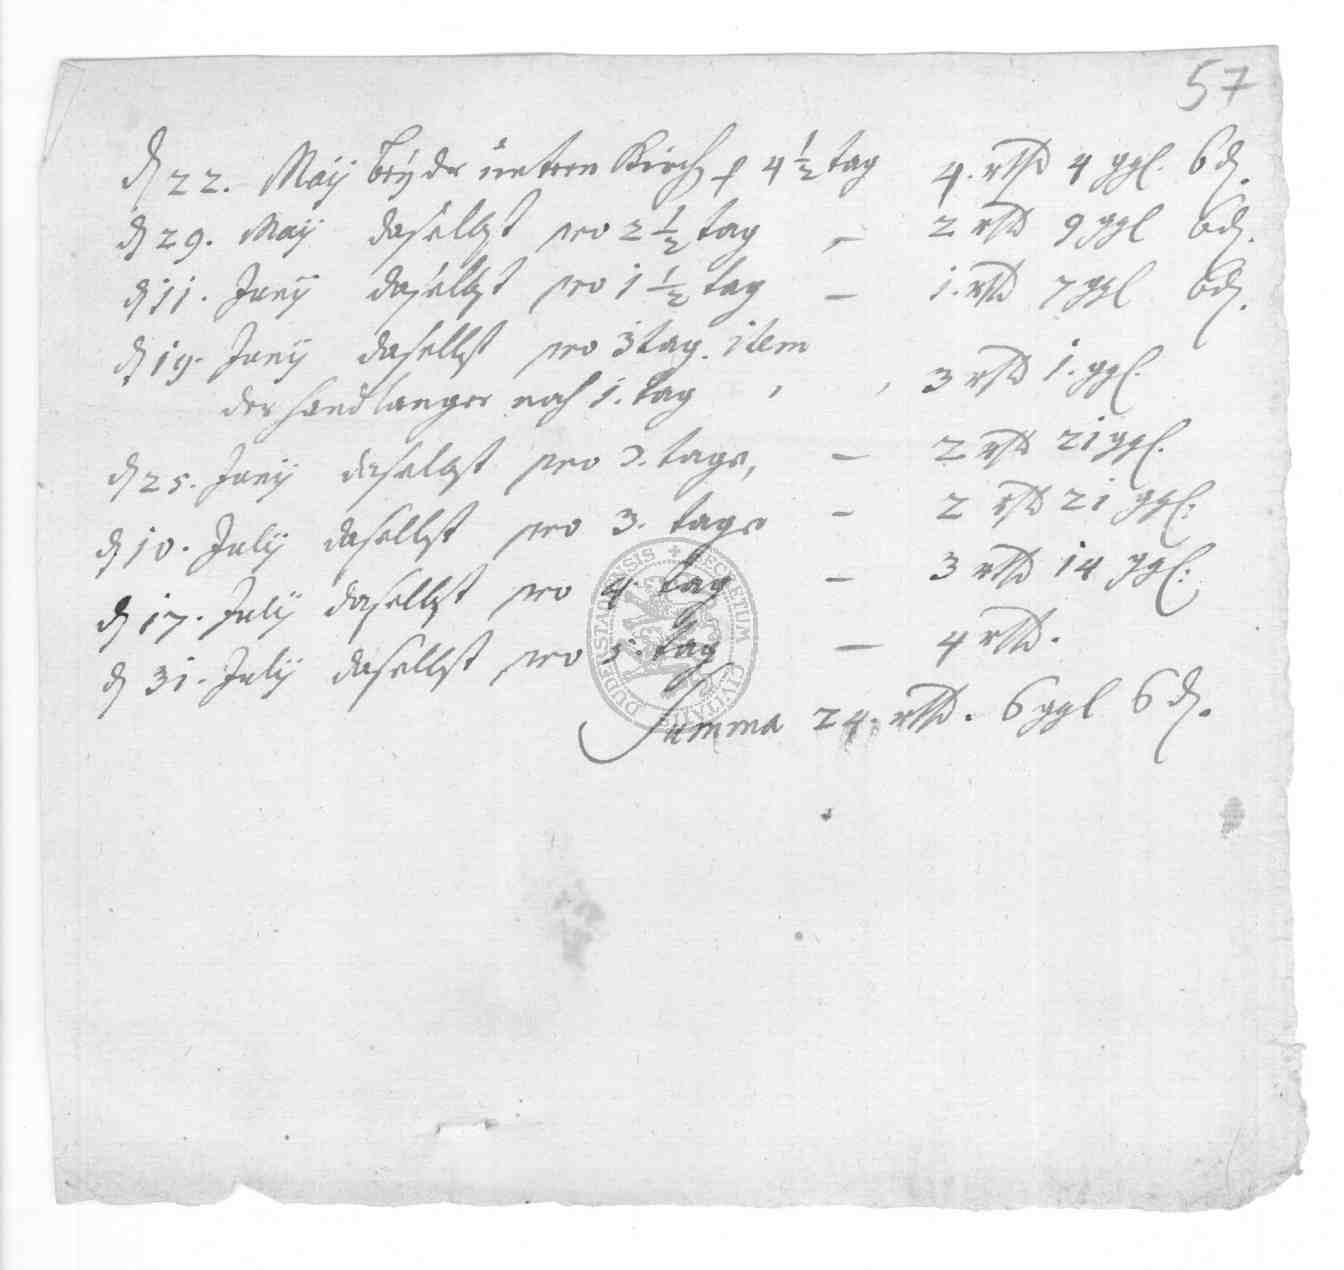 57
d 22. Maij beÿ der untern Kirch p 4 1/2 tag 4. rthl 4 ggl. 6 d.
d 29. Maij daselbst pro 2 1/2 tag – 2 rthl 9 ggl 6 d.
d 11. Junij daselbst pro 1 1/2 tag – 1. rthl 7 ggl 6 d.
d 19. Junij daselbst pro 3 tag. item
der handlanger noch 1. tag , , 3 rthl 1. ggl.
d 25. Junij daselbst pro 3. tage, – 2 rthl 21 ggl.
d 10. Julij daselbst pro 3. tage – 2 rthl 21 ggl:
d 17. Julij daselbst pro 4 tag – 3 rthl 14 ggl:
d 31. Julij daselbst pro 5. tag – 4 rthl.
Summa 24. rthl. 6 ggl 6 d.
SECRETUM CIVITATIS DUDERSTADENSIS